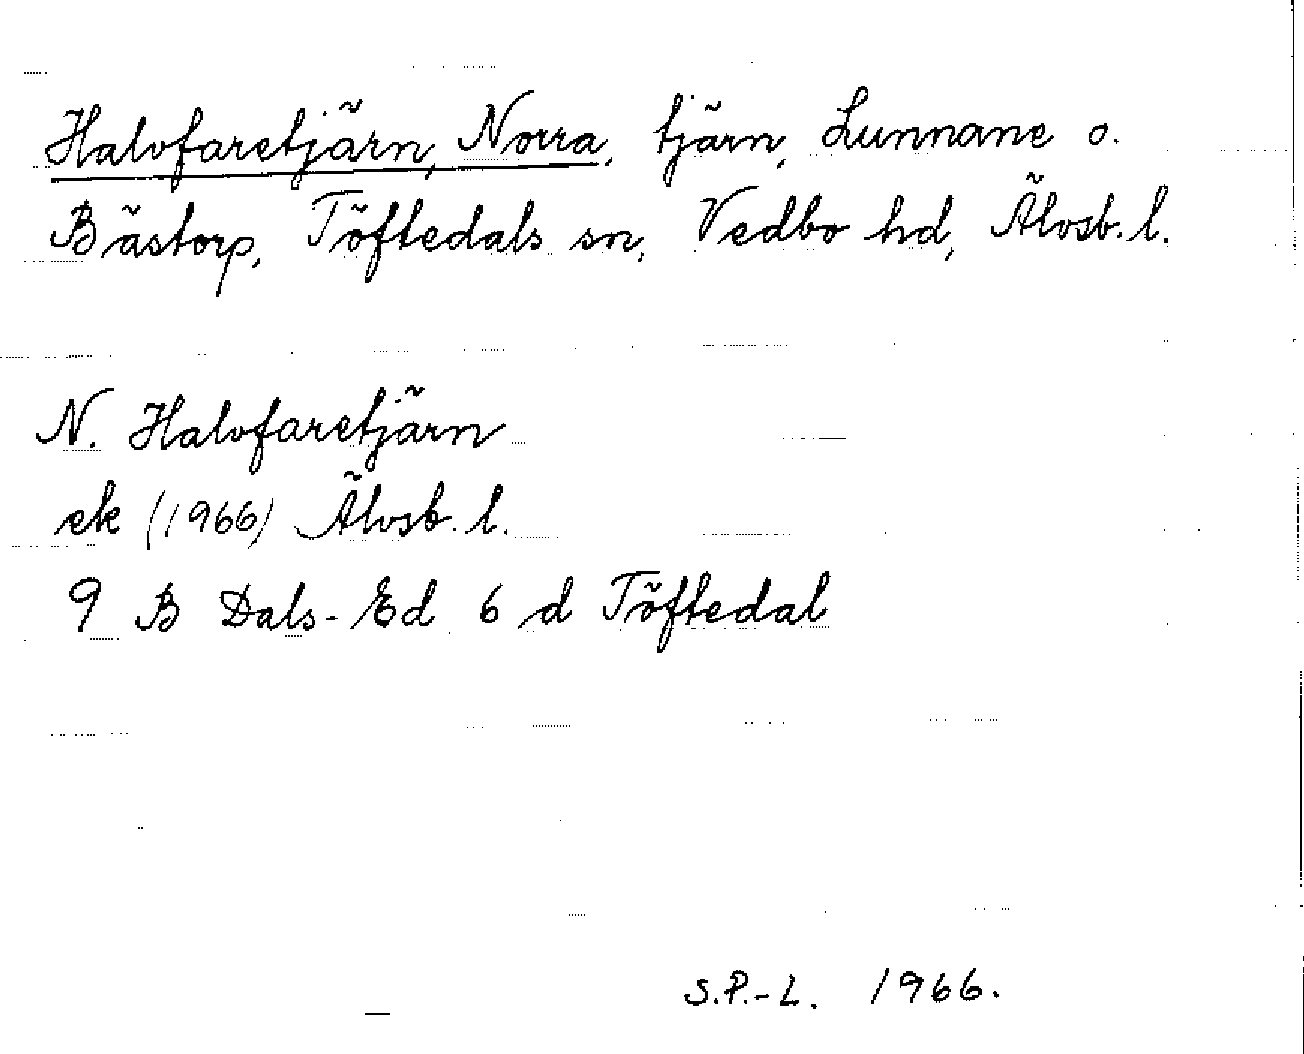 Halvfaretjärn, Norra, tjärn, Lunnane o.
Bästorp, Töftedals sn, Vedbo hd, Älvsb. l.
N. Halvfaretjärn
ek (1966) Älvsb. l.
9 B Dals-Ed 6 d Töftedal
S.P.-L. 1966.